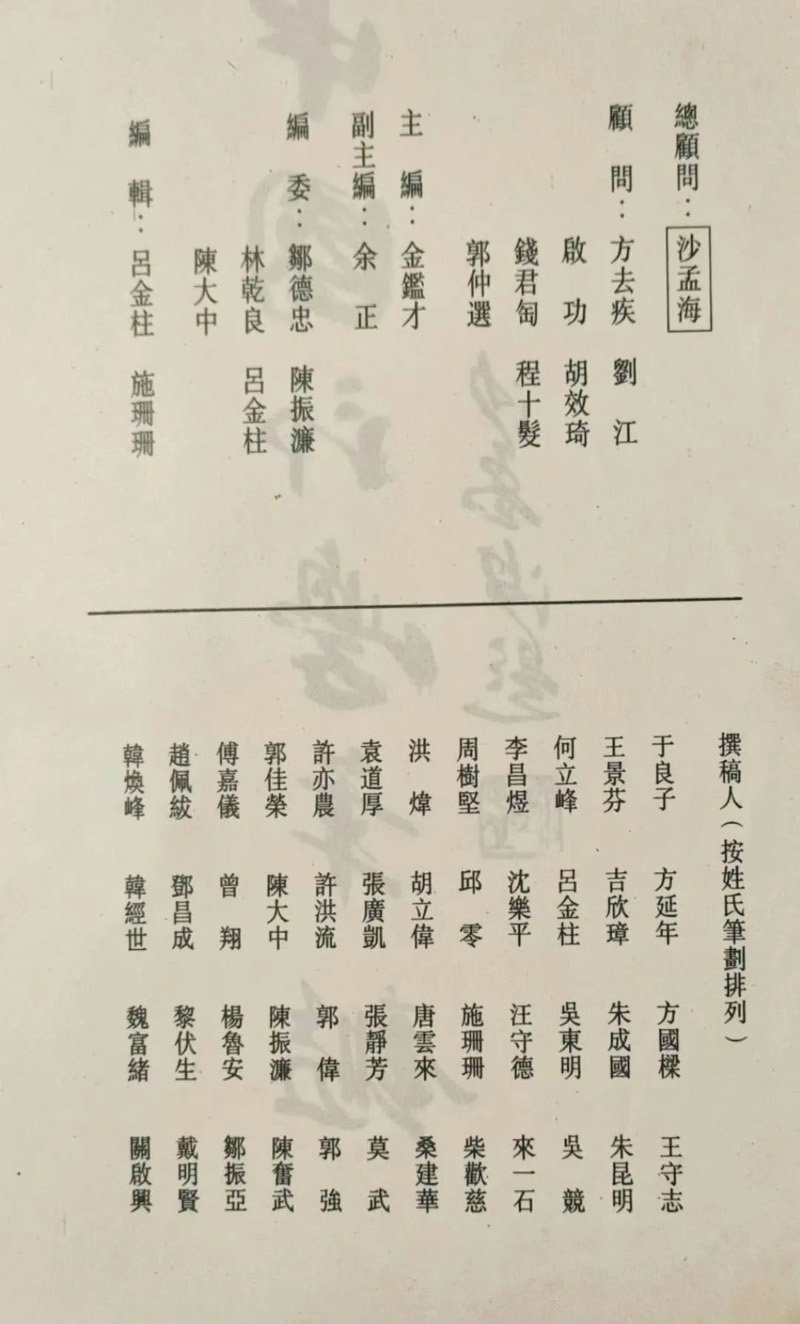 總顧問：沙孟海
顧問：方去疾 劉江
啟功 胡效琦
錢君匋 程十髮
郭仲選
主編：金鑑才
副主編：余正
編委：鄒德忠 陳振濂
林乾良 呂金柱
陳大中
編輯：呂金柱 施珊珊
撰稿人（按姓氏筆劃排列）
于良子 方延年 方國樑 王守志
王景芬 吉欣璋 朱成國 朱昆明
何立峰 呂金柱 吳東明 吳競
李昌煜 沈樂平 汪守德 來一石
周樹堅 邱零 施珊珊 柴歡慈
洪煒 胡立偉 唐雲來 桑建華
袁道厚 張廣凱 張靜芳 莫武
許亦農 許洪流 郭偉 郭強
郭佳榮 陳大中 陳振濂 陳奮武
傅嘉儀 曾翔 楊魯安 鄒振亞
趙佩紱 鄧昌成 黎伏生 戴明賢
韓煥峰 韓經世 魏富緒 關啟興